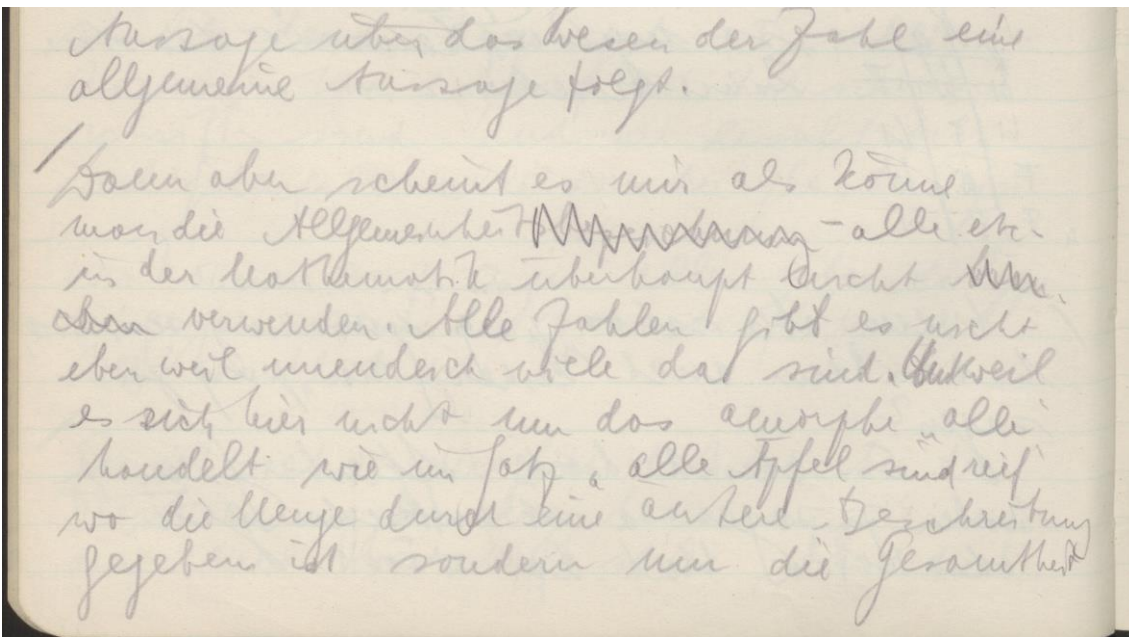 Aussage über das Wesen der Zahl eine
allgemeine Aussage folgt.
Dann aber scheint es mir als könne
man die Allgemeinheit – alle etc.
in der Mathematik überhaupt nicht
verwenden. Alle Zahlen gibt es nicht
eben weil unendlich viele da sind. Und weil
es sich hier nicht um das amorphe „alle“
handelt wie im Satz „alle Äpfel sind reif“
wo die Menge durch eine äußere Beschreibung
gegeben ist sondern um die Gesamtheit